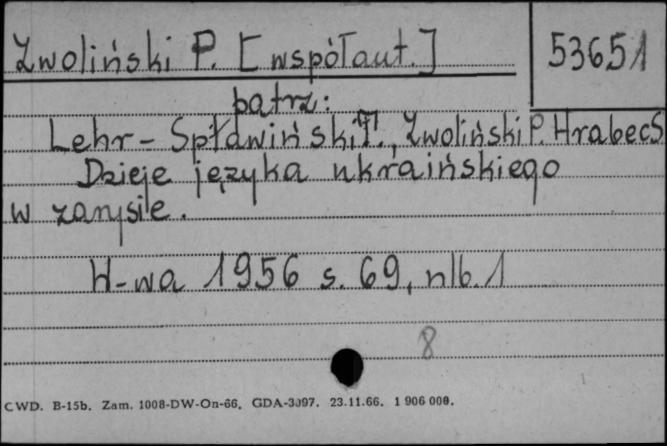 Zwoliński P. [współaut.] 53651
patrz:
Lehr-Spławiński T., Zwoliński P. Hrabec S
Dzieje języka ukraińskiego
w zarysie.
W-wa 1956 s. 69, nlb. 1
8
CWD. B-15b. Zam. 1008-DW-On-66. GDA-3097. 23.11.66. 1 906 000.